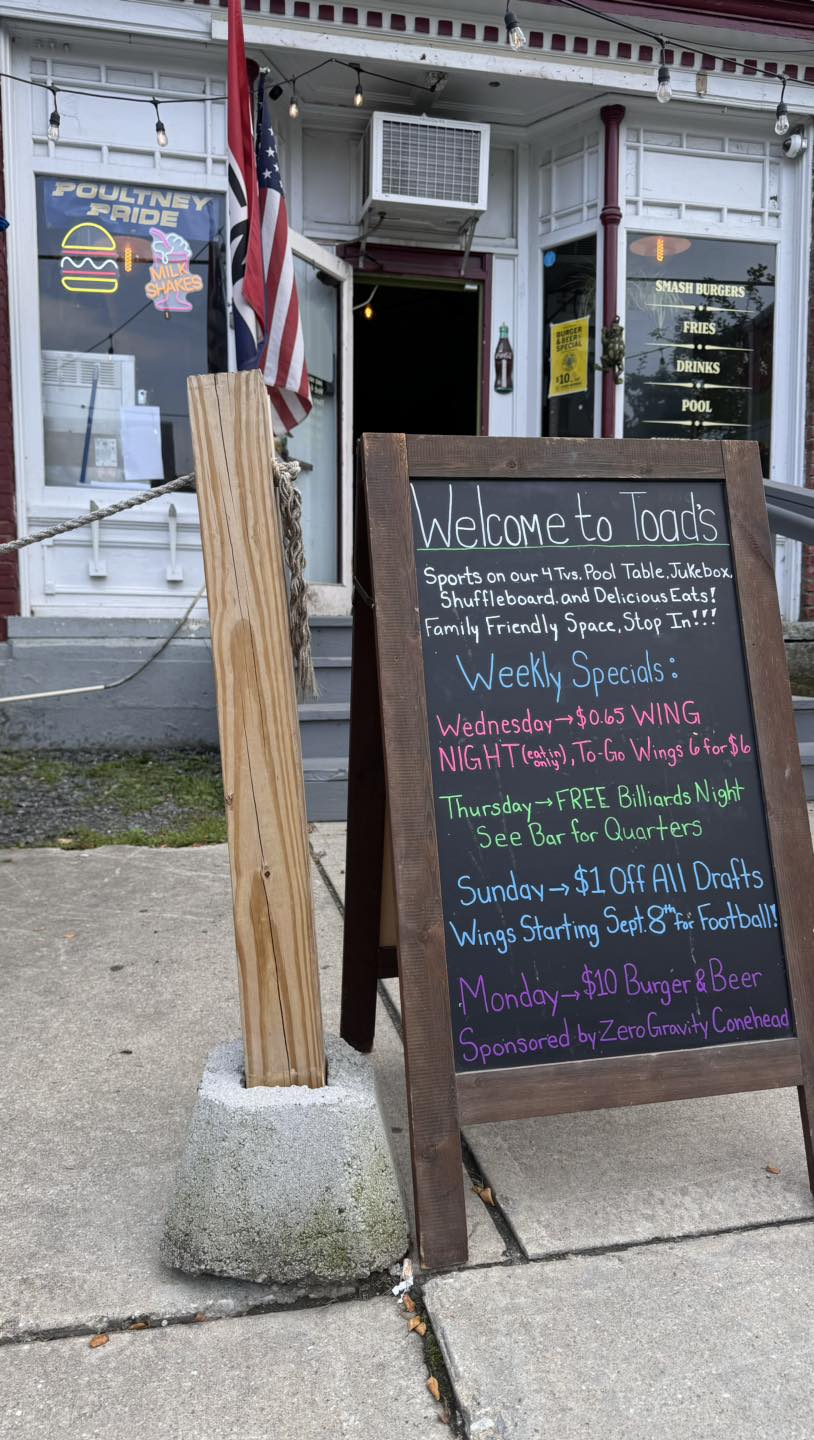 POULTNEY
PRIDE
MILK
SHAKES
SMASH BURGERS
FRIES
DRINKS
POOL
BURGER
& BEER
SPECIAL
$10
Welcome to Toad's
Sports on our 4 Tvs, Pool Table, Jukebox,
Shuffleboard, and Delicious Eats!
Family Friendly Space, Stop In!!!
Weekly Specials:
Wednesday→$0.65 WING
NIGHT (eat in only), To-Go Wings 6 for $6
Thursday→FREE Billiards Night
See Bar for Quarters
Sunday→$1 Off All Drafts
Wings Starting Sept. 8th for Football!
Monday→$10 Burger & Beer
Sponsored by Zero Gravity Conehead